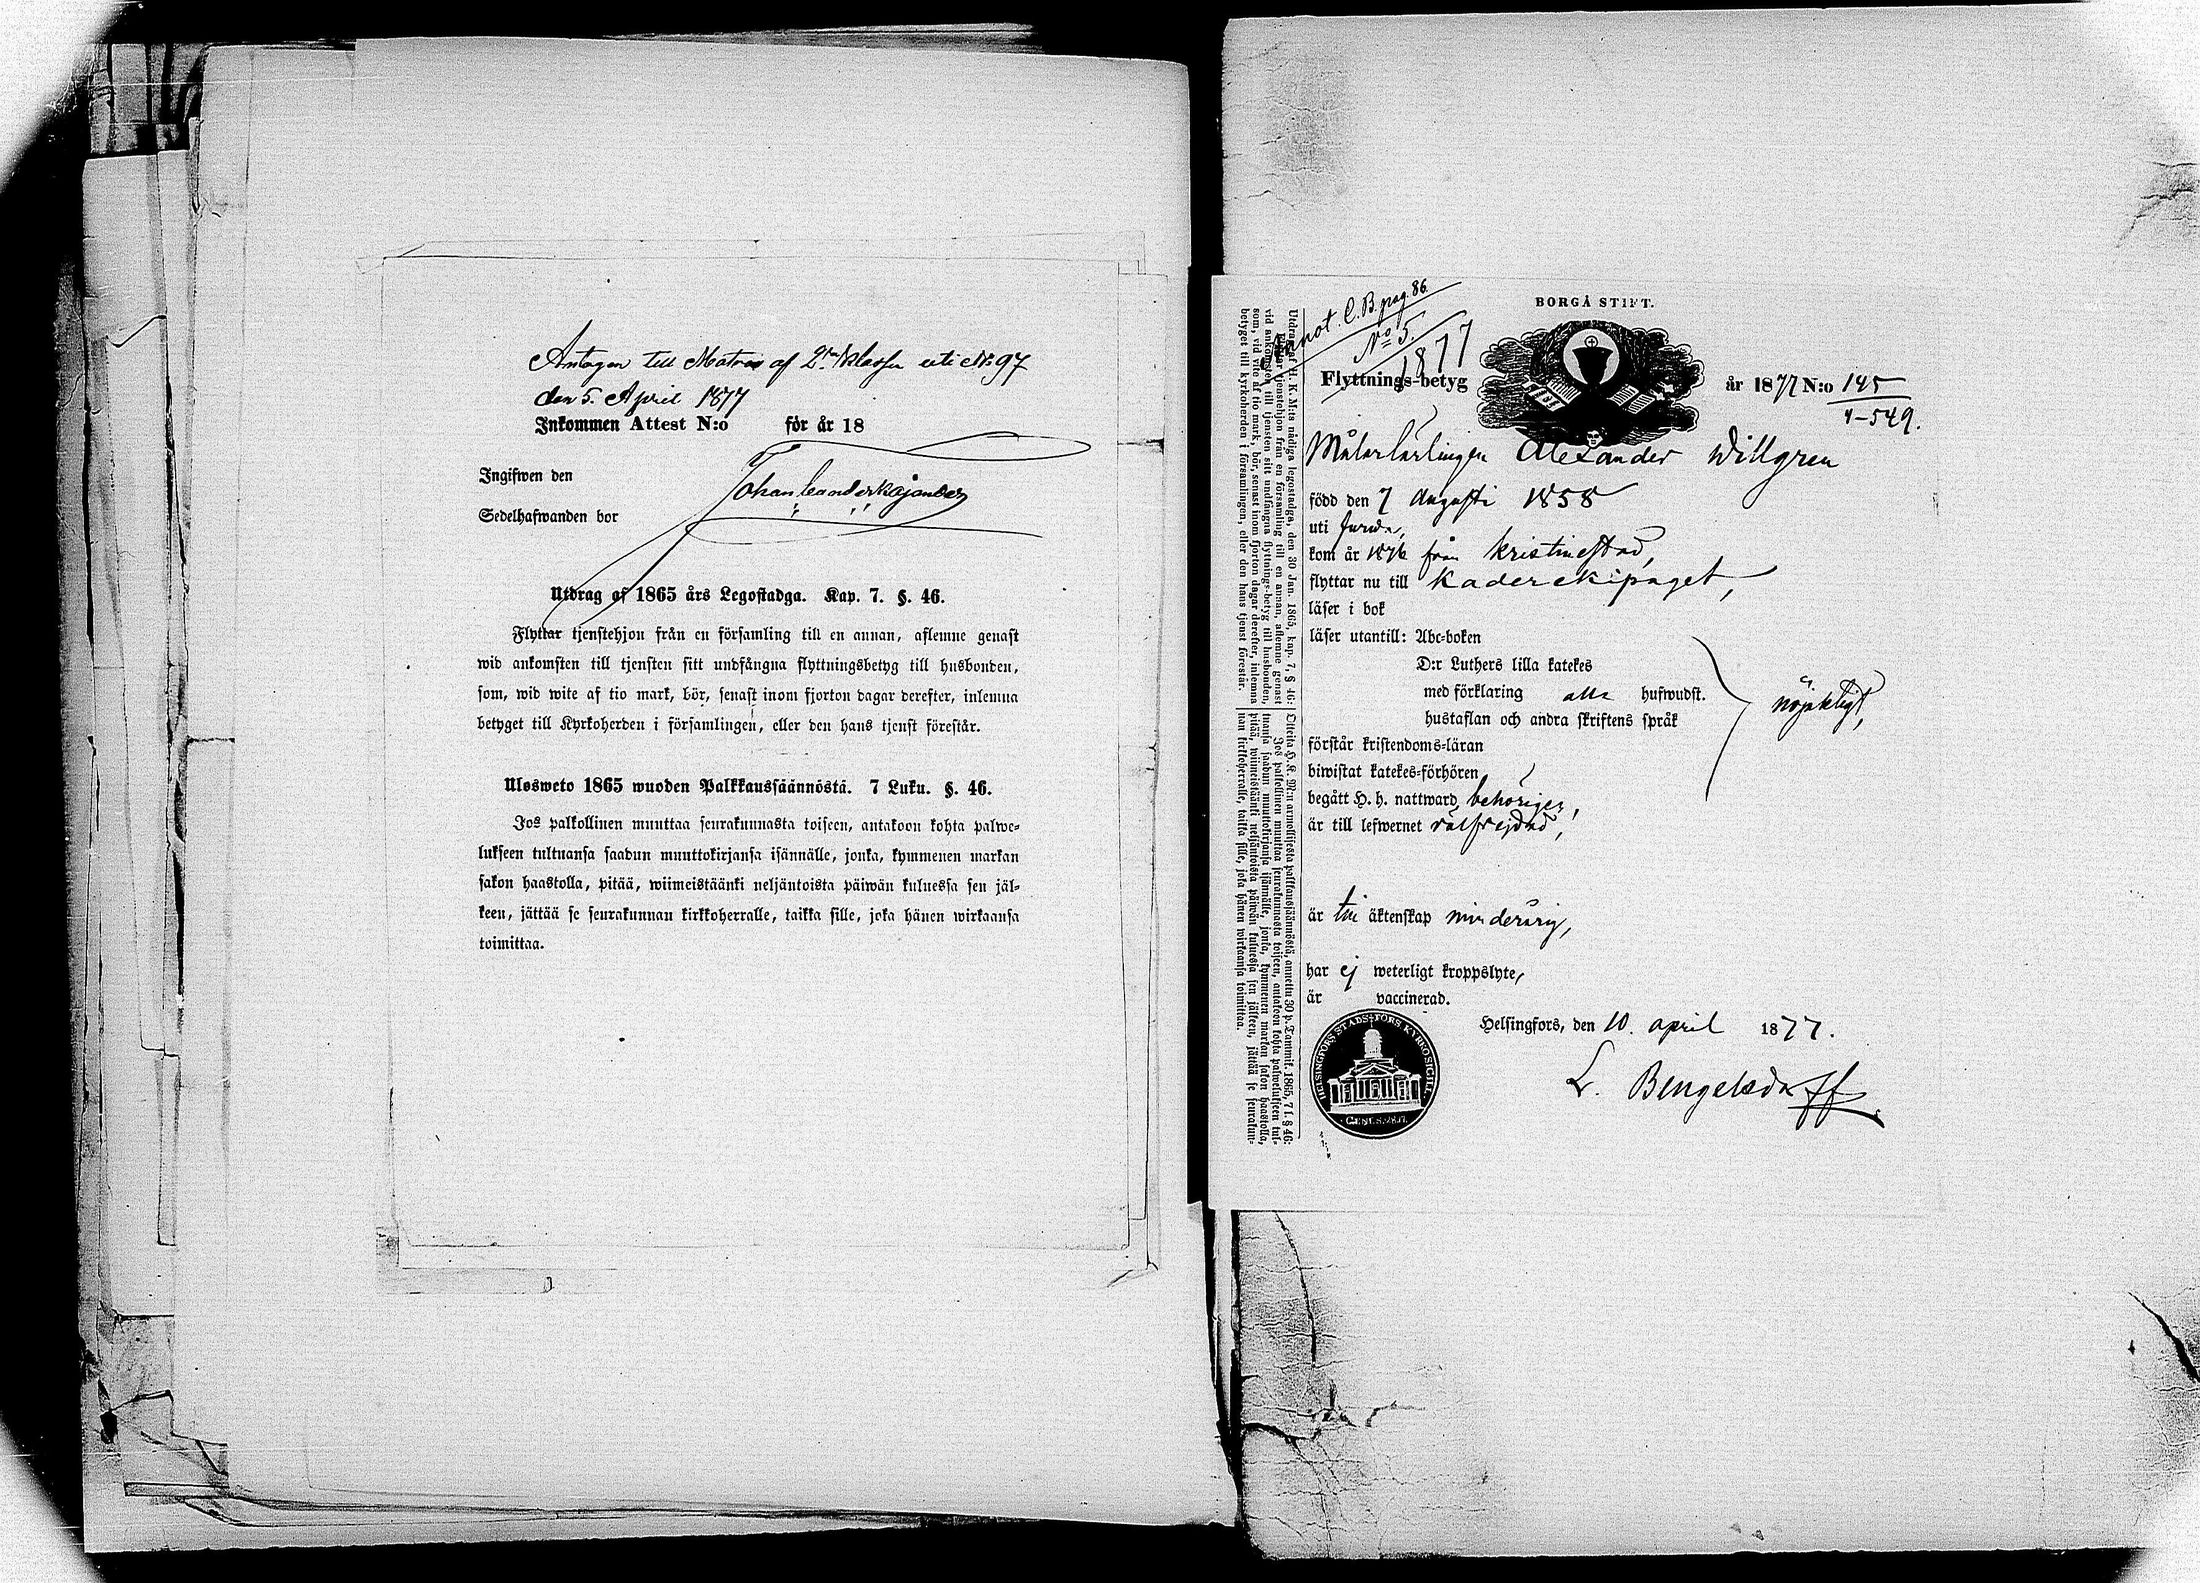 Antagen till Matros af 2:ra klassen uti No 97
den 5. April 1877
Inkommen Attest N:o för år 18
Ingifwen den
Johan Leander Kajander
Sedelhafwanden bor
Utdrag af 1865 års Legostadga. Kap. 7. §. 46.
Flyttar tjenstehjon från en församling till en annan, aflemne genast
wid ankomsten till tjensten sitt undfångna flyttningsbetyg till husbonden,
som, wid wite af tio mark, bör, senast inom fjorton dagar derefter, inlemna
betyget till Kyrkoherden i församlingen, eller den hans tjenst förestår.
Ulosweto 1865 wuoden Palkkaussäännöstä. 7 Luku. §. 46.
Jos palkollinen muuttaa seurakunnasta toiseen, antakoon kohta palwe-
lukseen tultuansa saadun muuttokirjansa isännälle, jonka, kymmenen markan
sakon haastolla, pitää, wiimeistäänki neljäntoista päiwän kuluessa sen jäl-
keen, jättää se seurakunnan kirkkoherralle, taikka sille, joka hänen wirkaansa
toimittaa.
Annot. C. B. pag. 86.
No 5.
1877
BORGÅ STIFT.
Flyttnings-betyg år 1877 N:o 145
1-549.
Målarlärlingen Alexander Willgren
född den 7 Augusti 1858
uti
kom år 1876 från Kristinestad,
flyttar nu till Kaderekipaget,
läser i bok
läser utantill: Abc-boken
D:r Luthers lilla katekes
med förklaring alla hufwudst.
hustaflan och andra skriftens språk
nöjaktigt,
förstår kristendoms-läran
biwistat katekes-förhören
begått H. h. nattward behörigen,
är till lefwernet wälfrejdad,
är till äktenskap minderårig,
har ej weterligt kroppslyte,
är vaccinerad.
Helsingfors, den 10. april 1877.
L. Bengelsdorff
HELSINGFORS STADS-FÖRS. KYRKOSIGILL
Utdrag af H. K. M:ts nådiga legostadga, den 30 Jan. 1865, kap. 7, § 46:
Flyttar tjenstehjon från en församling till en annan, aflemne genast
vid ankomsten till tjensten sitt undfångna flyttnings-betyg till husbonden,
som, vid vite af tio mark, bör, senast inom fjorton dagar derefter, inlemna
betyget till kyrkoherden i församlingen, eller den hans tjenst förestår.
Otteita H. K. M:n armollisesta palkkaussäännöstä, annettu 30 p. Tammik. 1865, 7 l. § 46:
Jos palkollinen muuttaa seurakunnasta toiseen, antakoon kohta palwelukseen tul-
tuansa saadun muuttokirjansa isännälle, jonka, kymmenen markan sakon haastolla,
pitää, wiimeistäänki neljäntoista päiwän kuluessa sen jälkeen, jättää se seurakun-
nan kirkkoherralle, taikka sille, joka hänen wirkaansa toimittaa.